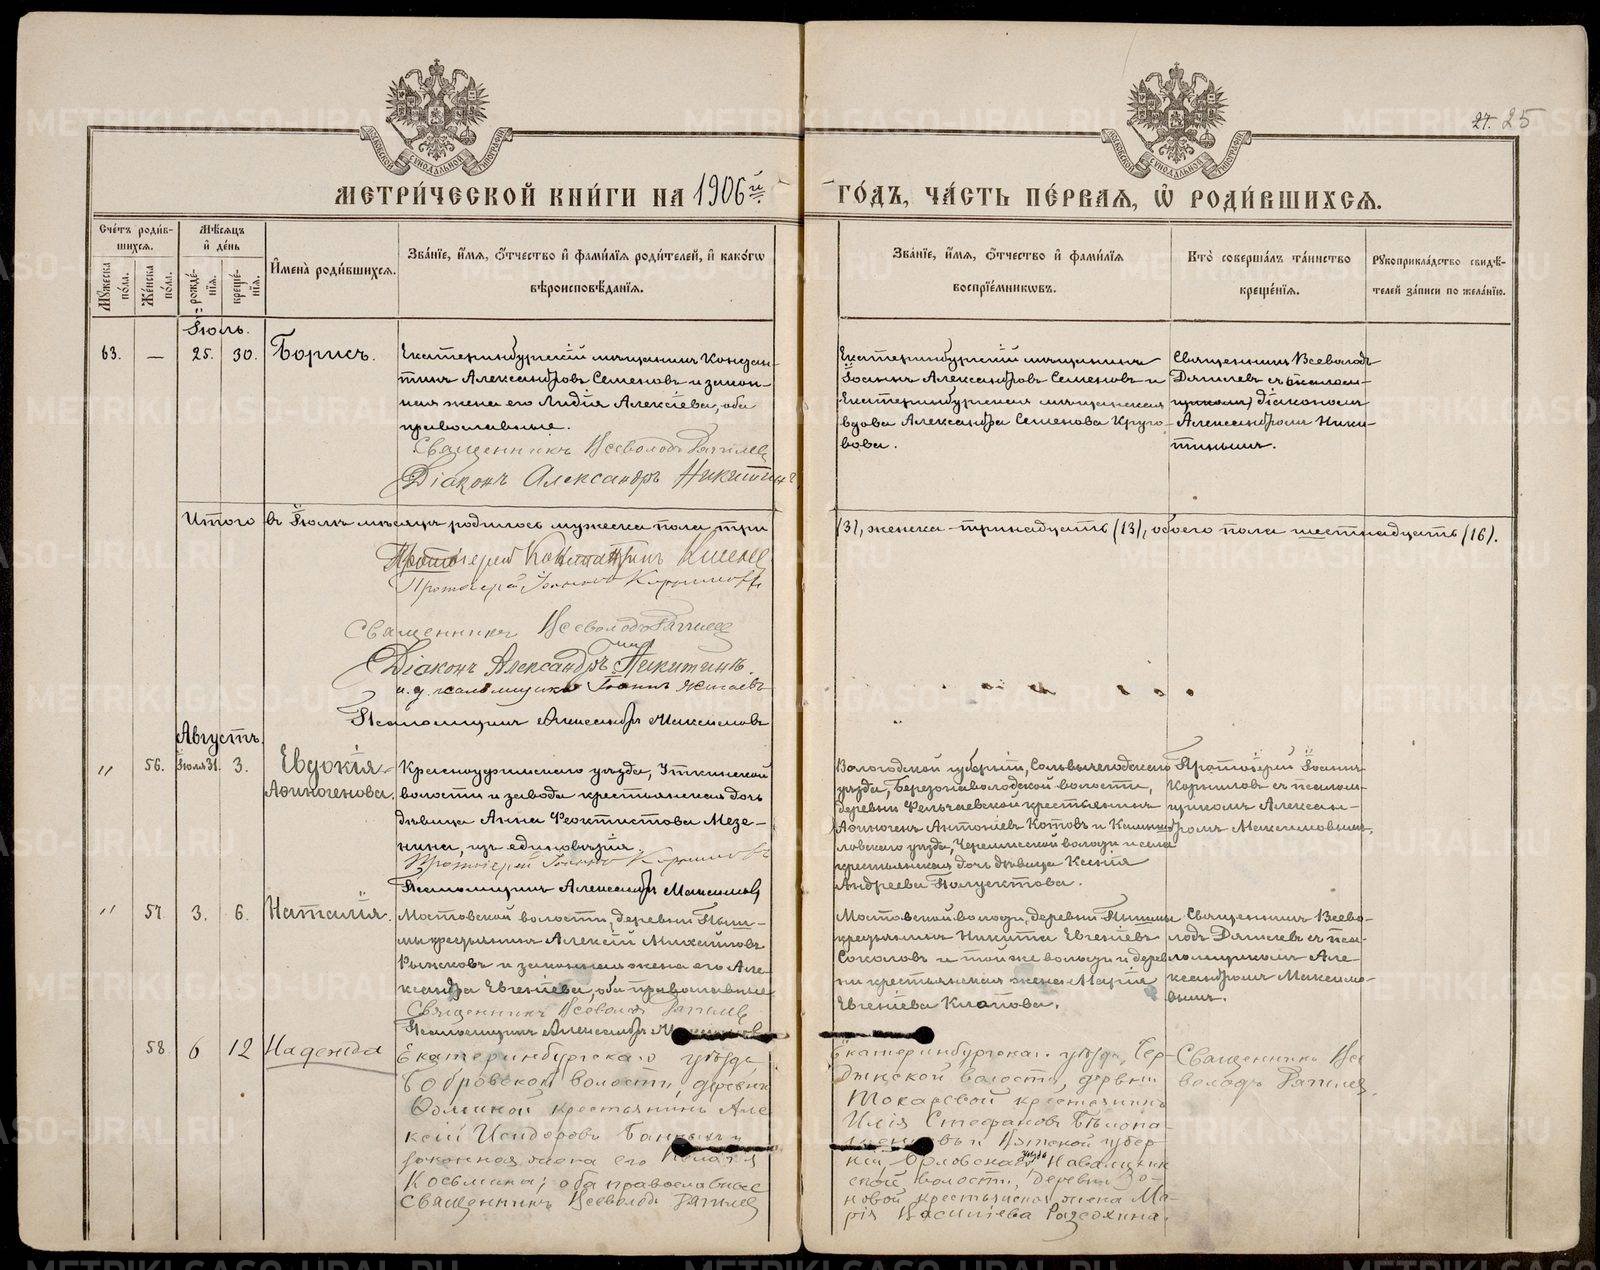 24. 25
МЕТРИ́ЧЕСКОЙ КНИ́ГИ НА 1906й
ГО́ДЪ, ЧА́СТЬ ПЕ́РВАѦ, Ѡ҆ РОДИ́ВШИХСѦ.
Сче́тъ роди́вшихся.
Мꙋ́жеска по́ла.
Же́нска по́ла.
Мѣ́сяцъ и҆ де́нь
рожде́нїя.
креще́нїя.
И҆мена̀ роди́вшихся.
Зва́нїе, и҆́мя, ѻ҆́тчество и҆ фами́лїя роди́телей, и҆ како́гѡ
вѣроисповѣ́данїя.
Зва́нїе, и҆́мя, ѻ҆́тчество и҆ фами́лїя
воспрїе́мникѡвъ.
Кто̀ соверша́лъ та́инство
креще́нїя.
Рꙋкоприкла́дство свидѣ́-
телей за́писи по жела́нїю.
Іюль.
63. — 25. 30. Борисъ.
Екатеринбургскій мѣщанинъ Констан-
тинъ Александровъ Семеновъ и закон-
ная жена его Лидія Алексіева, оба
православные.
Священникъ Всеволодъ
Діаконъ Александръ Никитинъ
Екатеринбургскій мѣщанинъ
Іоаннъ Александровъ Семеновъ и
Екатеринбургская мѣщанская
вдова Александра Семенова Круго-
вова.
Священникъ Всеволодъ
съ псалом-
щикомъ діакономъ
Александромъ Ники-
тинымъ.
Итого въ Іюлѣ мѣсяцѣ родилось мужеска пола три
(3), женска тринадцать (13), обоего пола шестнадцать (16).
Протоіерей Константинъ
Протоіерей Іоаннъ Корниловъ
Священникъ Всеволодъ
Діаконъ Александръ Никитинъ
и. д. псаломщика Іоаннъ
Псаломщикъ Александръ Максимовъ
Августъ.
" 56. Іюля 31. 3. Евдокія
Аѳиногенова.
Красноуфимскаго уѣзда, Уткинской
волости и завода крестьянская дочь
дѣвица Анна Феоктистова Мезе-
нина, изъ единовѣрія.
Протоіерей Іоаннъ Корниловъ
Псаломщикъ Александръ Максимовъ
Вологодской губерніи, Сольвычегодскаго
уѣзда, Березонаволоцкой волости,
деревни крестьянинъ
Аѳиногенъ Антоніевъ Котовъ и
ловскаго уѣзда, волости и села
крестьянская дочь дѣвица Ксенія
Андреева Полуектова.
Протоіерей Іоаннъ
Корниловъ съ псалом-
щикомъ Алексан-
дромъ Максимовымъ.
" 57. 3. 6. Наталія.
Мостовской волости, деревни Пыш-
мы крестьянинъ Алексій Михайловъ
Рыжковъ и законная жена его Але-
ксандра Евгеніева, оба православные
Священникъ Всеволодъ
Псаломщикъ Александръ
Мостовской волости, деревни Пышмы
крестьянинъ Никита Евгеніевъ
Соколовъ и той же волости и дерев-
ни крестьянская жена Марія
Евгеніева Клопова.
Священникъ Всево-
лодъ съ пса-
ломщикомъ Але-
ксандромъ Максимо-
вымъ.
58. 6 12 Надежда
Екатеринбургскаго уѣзда
Бобровской волости, деревни
крестьянинъ Але-
ксій Исидоровъ
законная жена его
Косьмина; оба православные
Священникъ Всеволодъ
Екатеринбургскаго уѣзда,
волости, деревни
Токаревой крестьянинъ
Илія Стефановъ
и Вятской губер-
ніи, Орловскаго уѣзда
ской волости, деревни
крестьянская жена Ма-
рія Василіева
Священникъ Все-
володъ